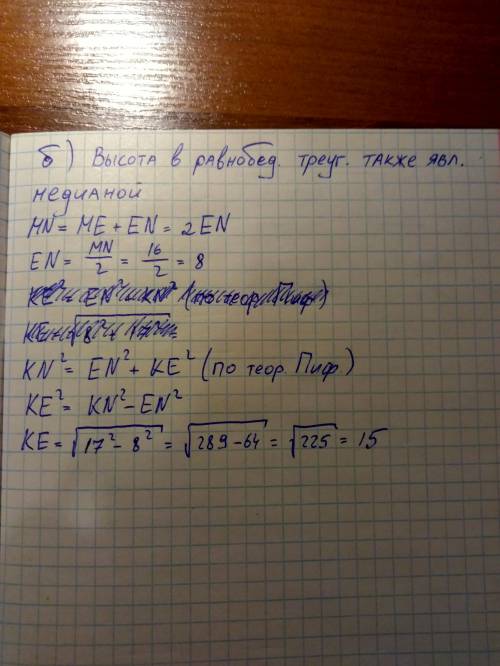 б) Высота в равнобед. треуг. также явл.
медианой
MN = ME + EN = 2EN
EN = MN/2 = 16/2 = 8
KN² = EN² + KE² (по теор. Пиф.)
KE² = KN² - EN²
KE = √(17² - 8²) = √(289 - 64) = √225 = 15